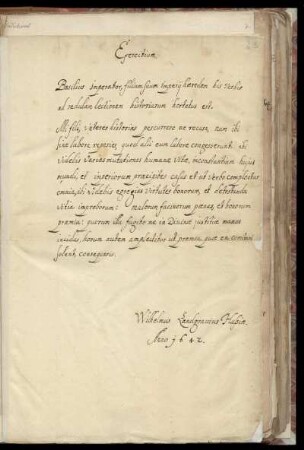 Exercitium
Basilius Imperator, filium suum Imperij hæredem his verbis
ad sedulam lectionem historiarum hortatus est.
Mi fili, veteres historias percurrere ne recuses, nam ibi
sine labore reperies, quæ alij cum labore congesserunt: ibi
videbis varias mutationes humanæ vitæ, inconstantiam hujus
mundi, et imperiorum præcipites casus et ut verbo complectar
omnia, ibi videbis egregias virtutes bonorum, et detestanda
vitia improborum: malorum facinorum pœnas, et bonorum
præmia: quorum illa fugito ne in Divinæ justitiæ manus
incidas, horum autem amplectitor ut præmia, quæ ea comitari
solent, consequaris.
Wilhelmus Landgravius Hassiæ.
Anno 1642.